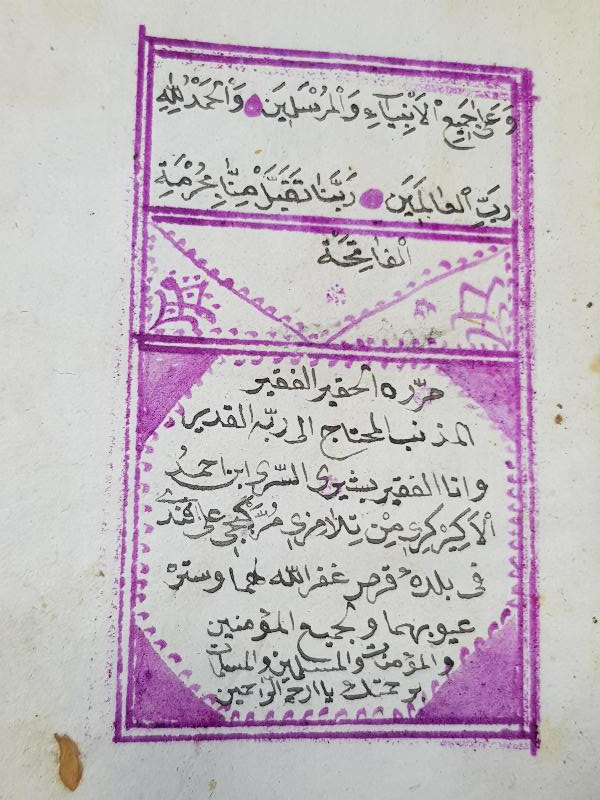 وَعَلٰى جَمِيعِ الْاَنْبِيَآءِ وَالْمُرْسَلِينَ وَالْحَمْدُ لِلّٰهِ
رَبِّ الْعَالَمِينَ رَبَّنَا تَقَبَّلْ مِنَّا بِحُرْمَةِ
الْفَاتِحَةْ
حرّره الحقير الفقير
المذنب المحتاج الى ربّه القدير
وانا الفقير بشيرى السّرى ابن احمدُ
الْاَكِيزْكِرِي مِنْ تِلَامِزِي
فى بلدهٔ قرص غفر الله لهما وسترْ
عيوبهما ولجميع المؤمنين
والمؤمنات والمسلمين والمسلمات
برحمتك يا ارحم الرّاحمين